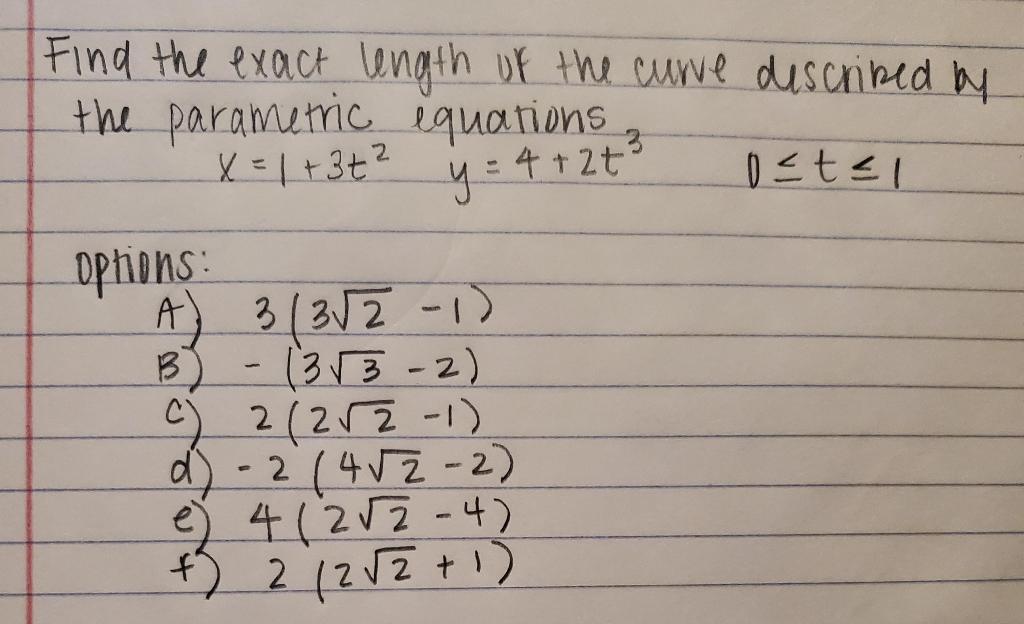 Find the exact length of the curve described by
the parametric equations
x = 1 + 3t² y = 4 + 2t³ 0 ≤ t ≤ 1
options:
A) 3 (3√2 - 1)
B) - (3√3 - 2)
C) 2 (2√2 - 1)
d) - 2 (4√2 - 2)
e) 4 (2√2 - 4)
f) 2 (2√2 + 1)